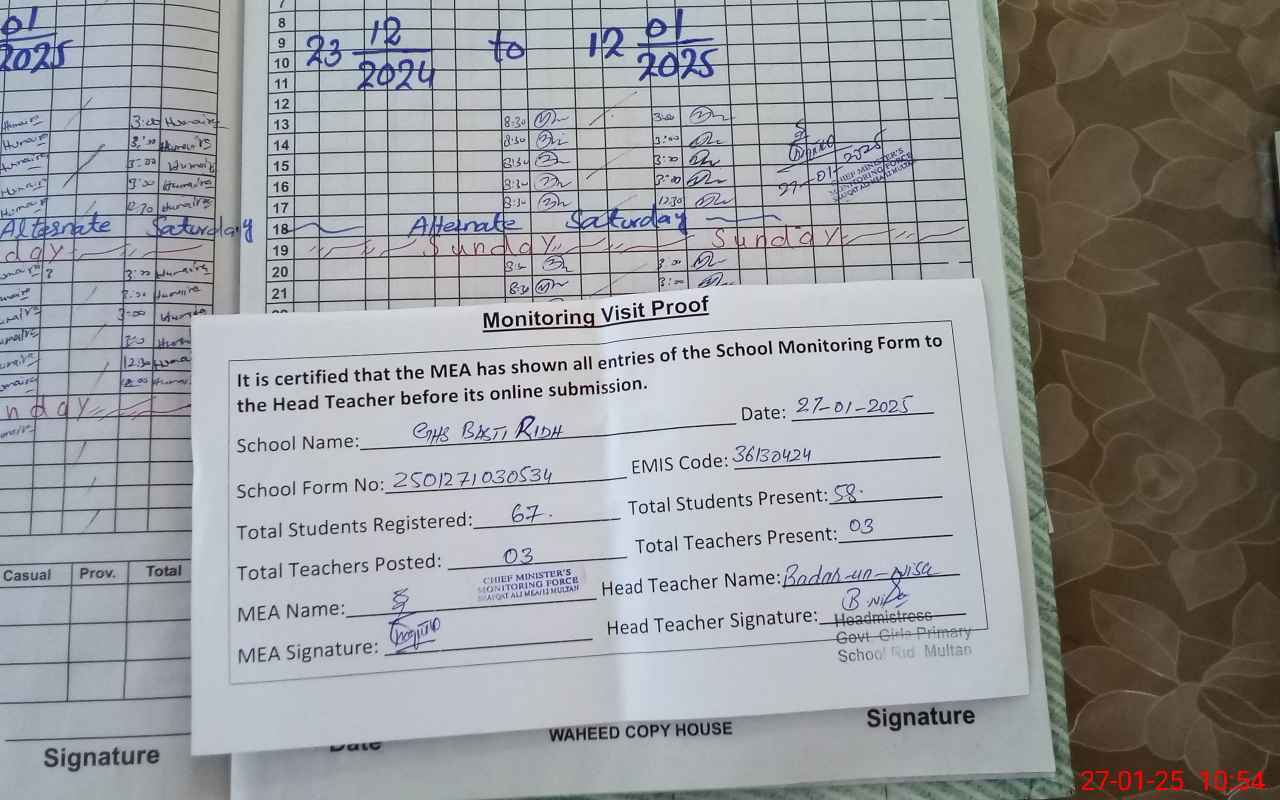 01
2025
7
8
9
10
11
12
13
14
15
16
17
18
19
20
21
23 12 to 12 01
2024 2025
3:00 Humaira
3:00 Humaira
3:00 Humaira
3:00 Humaira
12:30 Humaira
8:30 3:00
8:30 3:00
8:30 3:00
8:30 3:00
8:30 12:30
27-01-2025
CHIEF MINISTER'S
MONITORING FORCE
SHAFQAT ALI MEA/IJ MULTAN
Alternate Saturday
Alternate Saturday
day Sunday Sunday
3:00 Humaira
3:00 Humaira
3:00
8:30 3:00
8:30 3:00
12:30
nday
Monitoring Visit Proof
It is certified that the MEA has shown all entries of the School Monitoring Form to
the Head Teacher before its online submission.
School Name: GHS BASTI RIDH Date: 27-01-2025
School Form No: 2501271030534 EMIS Code: 36130424
Total Students Registered: 67. Total Students Present: 58.
Total Teachers Posted: 03 Total Teachers Present: 03
MEA Name: Head Teacher Name: Badar-un-Nisa
CHIEF MINISTER'S
MONITORING FORCE
SHAFQAT ALI MEA/IJ MULTAN
MEA Signature: Head Teacher Signature: B. Nisa
Headmistress
Govt. Girls Primary
School Rid Multan
Casual Prov. Total
Signature
Date
WAHEED COPY HOUSE
Signature
27-01-25 10:54